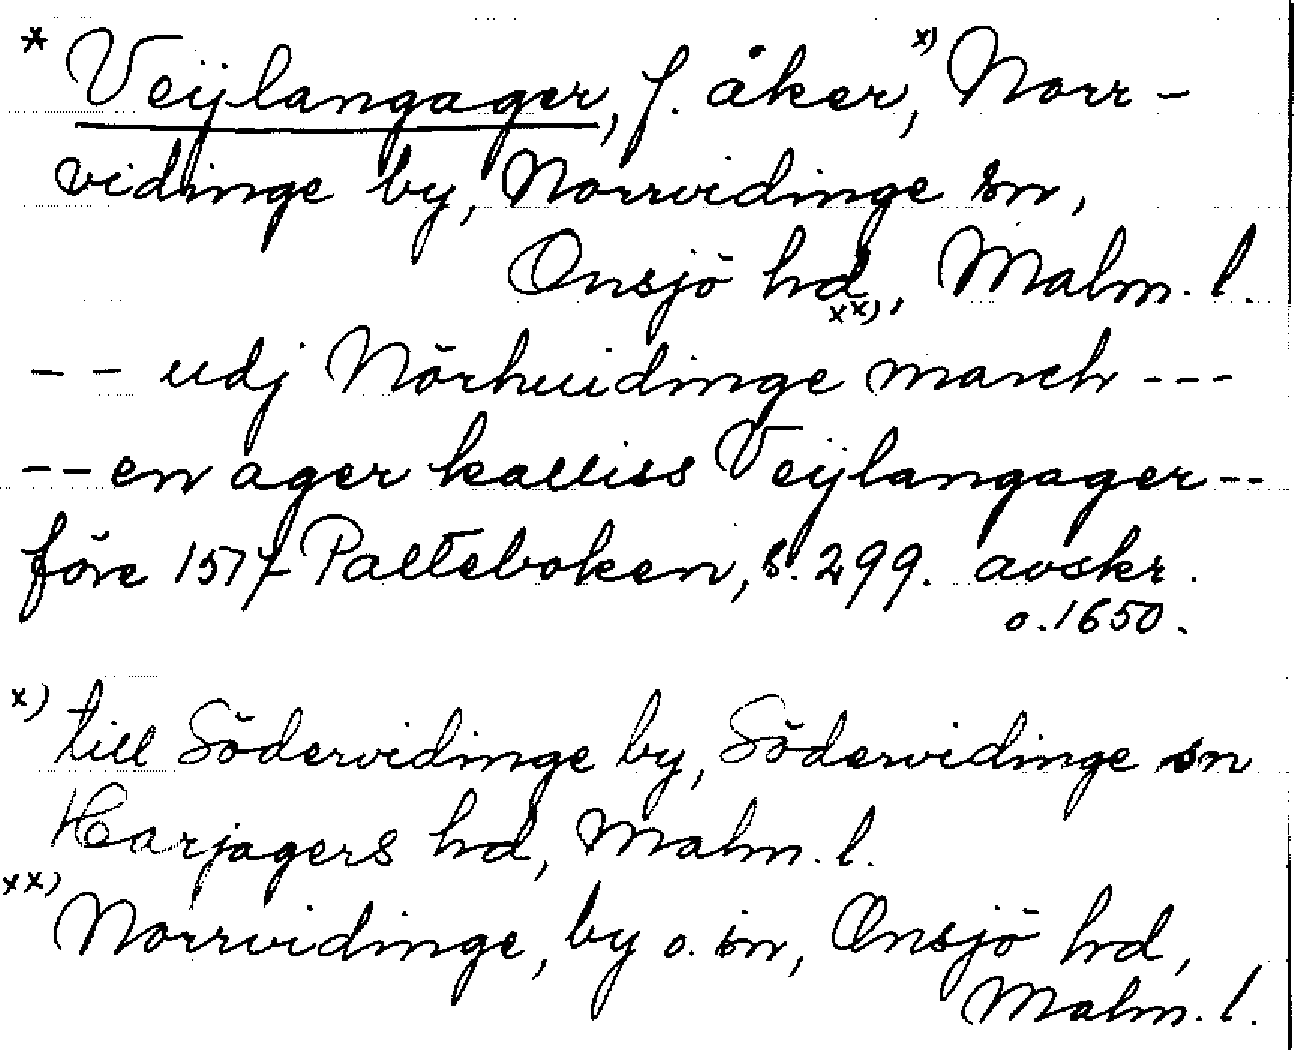 * Veijlangager, f. åker, x) Norr-
vidinge by, Norrvidinge sn,
Onsjö hd, xx) Malm. l.
-- udj Nörhuidinge march ---
-- en ager kalliss Veijlangager --
före 1517 Palteboken, s. 299. avskr.
o. 1650.
x) till Södervidinge by, Södervidinge sn
Harjagers hd, Malm. l.
xx) Norrvidinge, by o. sn, Onsjö hd,
Malm. l.